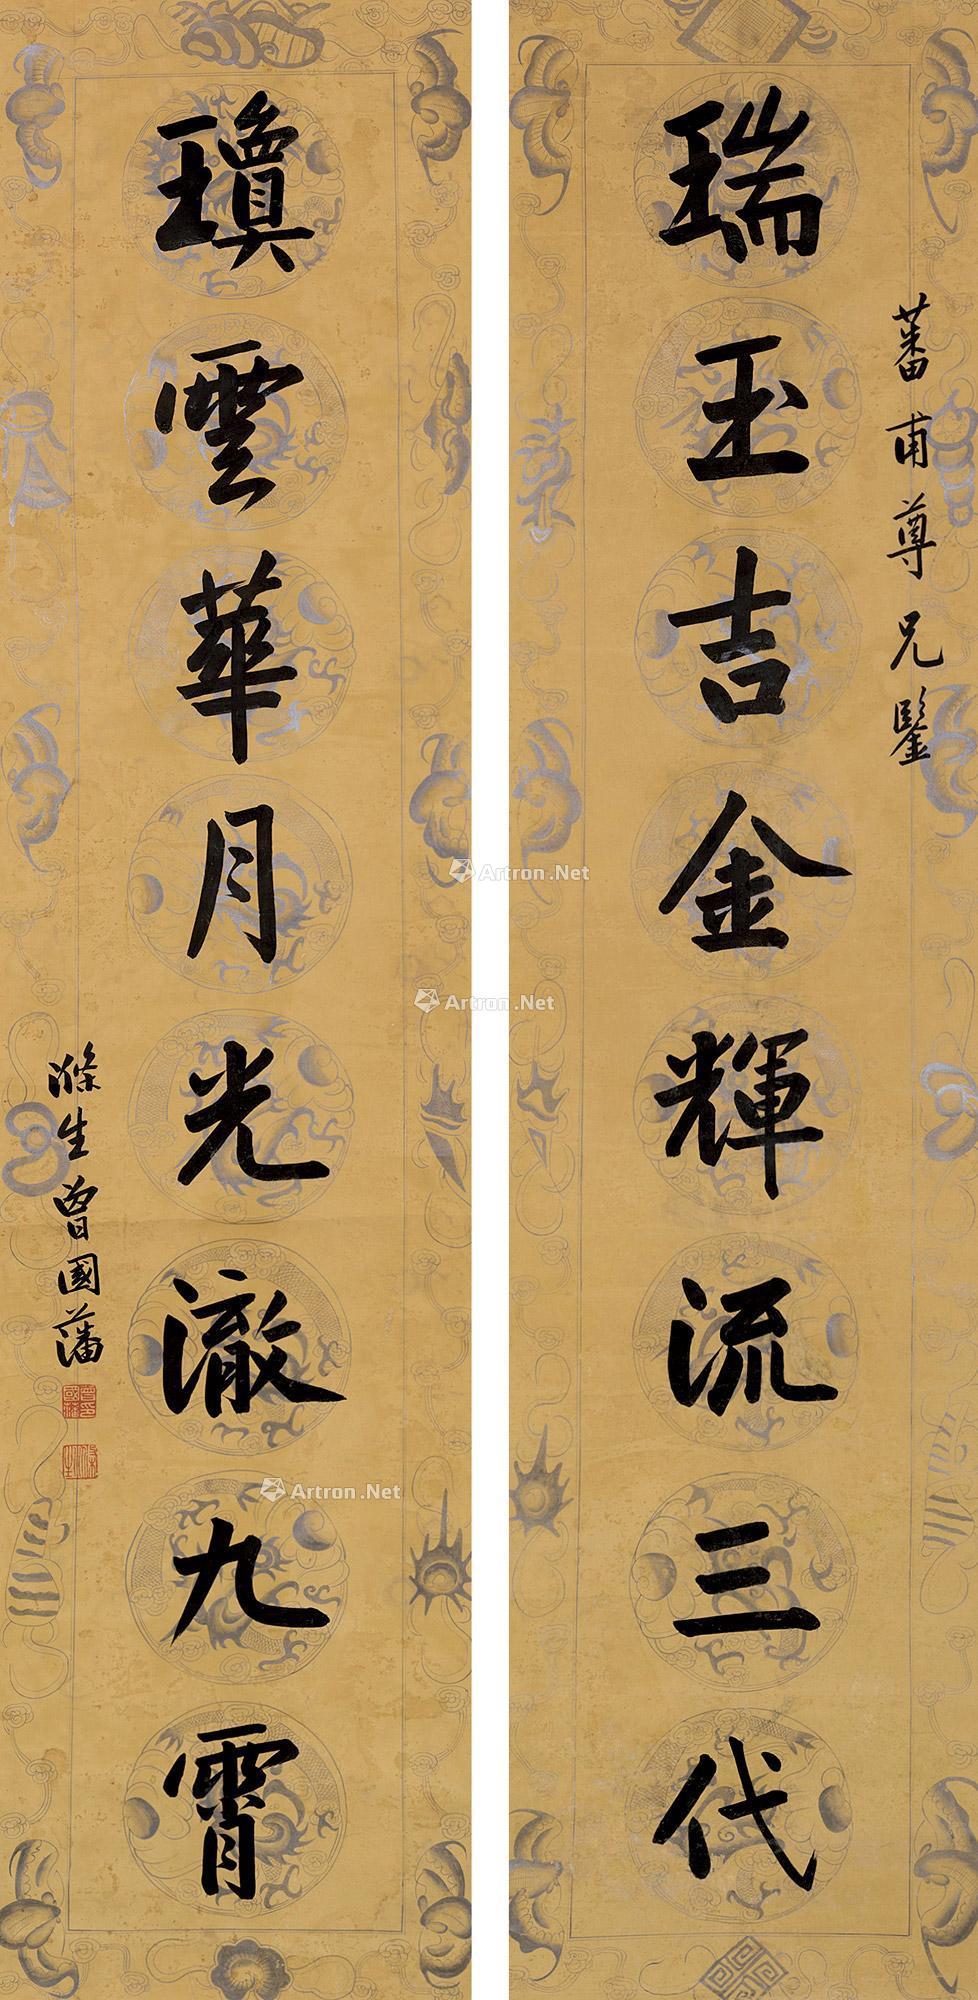 蕃甫尊兄鑒
瑞玉吉金輝流三代
瓊雲華月光澈九霄
滌生曾國藩
Artron.Net
Artron.Net
Artron.Net